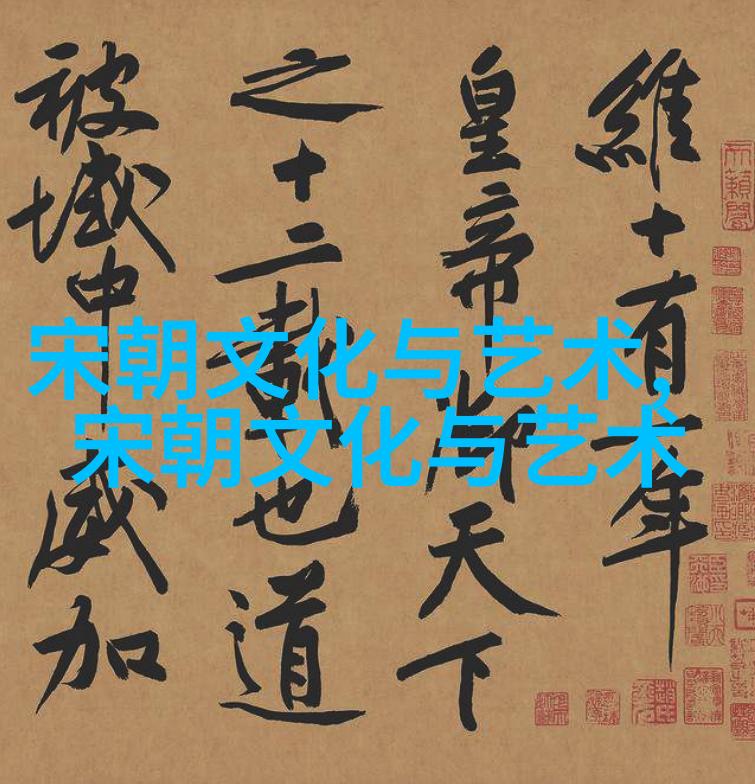 維十有一年
皇帝御天下
之十二載也道
被域中威加
宋朝文化与艺术,
宋朝文化与艺术